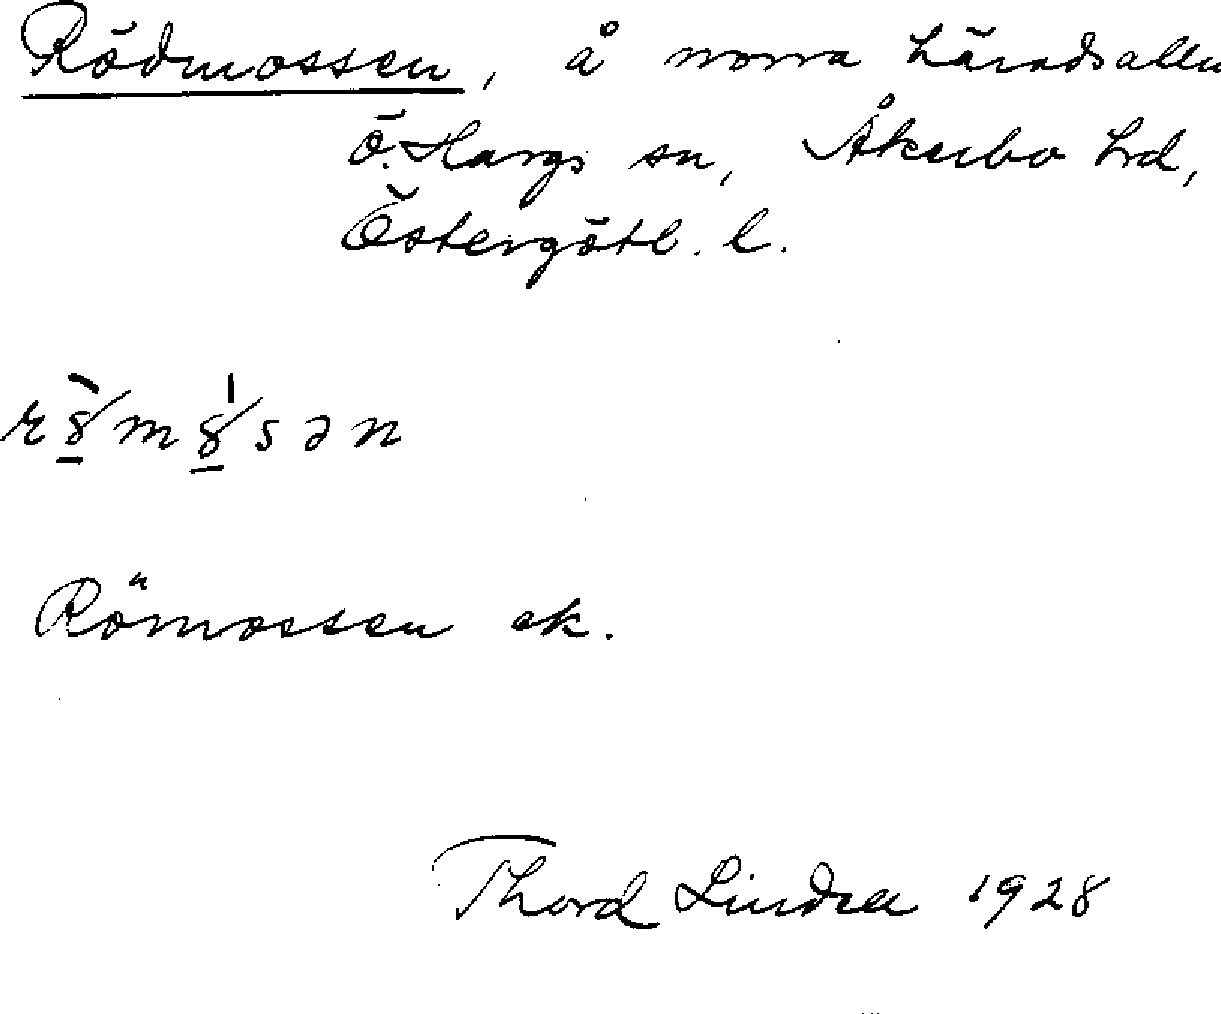 Rödmossen, å norra häradsallm
Ö. Hargs sn, Åkerbo hrd,
Östergötl. l.
Römossen ek.
Thord Lindra 1928